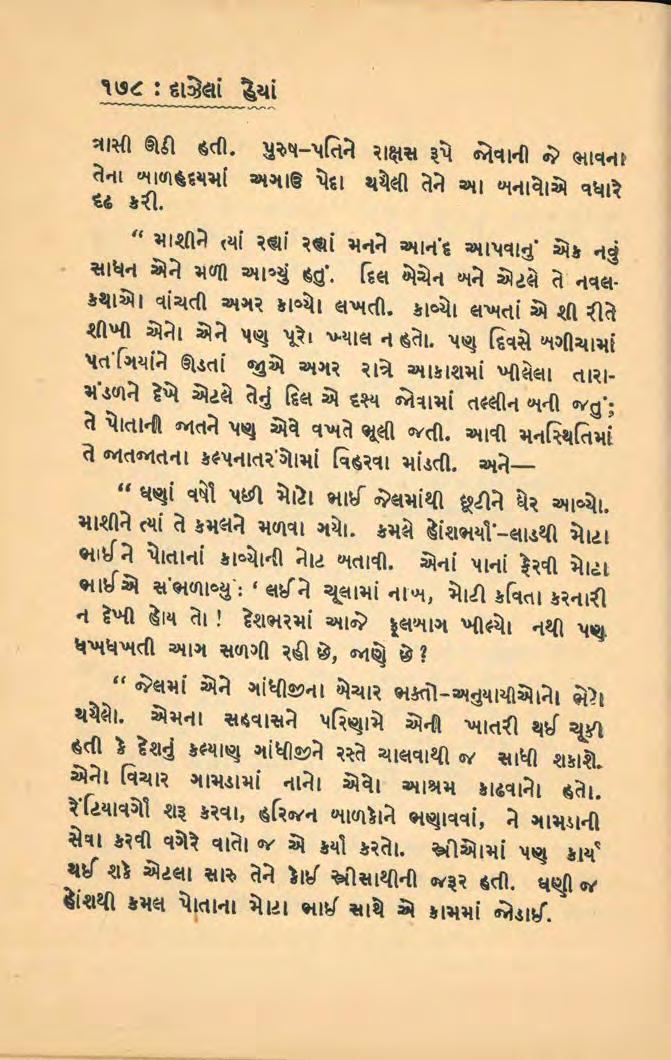 ૧૭૮ : દાઝેલાં હૈયાં
ત્રાસી ઊઠી હતી. પુરુષ–પતિને રાક્ષસ રૂપે જોવાની જે ભાવના
તેના બાળહૃદયમાં અગાઉ પેદા થયેલી તેને આ બનાવોએ વધારે
દૃઢ કરી.
“ માશીને ત્યાં રહ્યાં રહ્યાં મનને આનંદ આપવાનું એક નવું
સાધન એને મળી આવ્યું હતું. દિલ બેચેન બને એટલે તે નવલ-
કથાઓ વાંચતી અગર કાવ્યો લખતી. કાવ્યો લખતાં એ શી રીતે
શીખી એનો એને પણ પૂરો ખ્યાલ ન હતો. પણ દિવસે બગીચામાં
પતંગિયાંને ઊડતાં જુએ અગર રાત્રે આકાશમાં ખીલેલા તારા-
મંડળને દેખે એટલે તેનું દિલ એ દશ્ય જોવામાં તલ્લીન બની જતું;
તે પોતાની જાતને પણ એવે વખતે ભૂલી જતી. આવી મનસ્થિતિમાં
તે જાતજાતના કલ્પનાતરંગોમાં વિહરવા માંડતી. અને—
“ ઘણાં વર્ષો પછી મોટો ભાઈ જેલમાંથી છૂટીને ઘેર આવ્યો.
માશીને ત્યાં તે કમલને મળવા ગયો. કમલે હોંશભર્યા–લાડથી મોટા
ભાઈને પોતાનાં કાવ્યોની નોટ બતાવી. એનાં પાનાં ફેરવી મોટા
ભાઈએ સંભળાવ્યું : ‘ લઈને ચૂલામાં નાખ, મોટી કવિતા કરનારી
ન દેખી હોય તો ! દેશભરમાં આજે ફૂલબાગ ખીલ્યો નથી પણ
ધખધખતી આગ સળગી રહી છે, જાણે છે ?
“ જેલમાં એને ગાંધીજીના બેચાર ભક્તો–અનુયાયીઓનો ભેટો
થયેલો. એમના સહવાસને પરિણામે એની ખાતરી થઈ ચૂકી
હતી કે દેશનું કલ્યાણ ગાંધીજીને રસ્તે ચાલવાથી જ સાધી શકાશે.
એનો વિચાર ગામડામાં નાનો એવો આશ્રમ કાઢવાનો હતો.
રેંટિયાવર્ગો શરૂ કરવા, હરિજન બાળકોને ભણાવવાં, ને ગામડાની
સેવા કરવી વગેરે વાતો જ એ કર્યા કરતો. સ્ત્રીઓમાં પણ કાર્ય
થઈ શકે એટલા સારુ તેને કોઈ સ્ત્રીસાથીની જરૂર હતી. ઘણી જ
હોંશથી કમલ પોતાના મોટા ભાઈ સાથે એ કામમાં જોડાઈ.